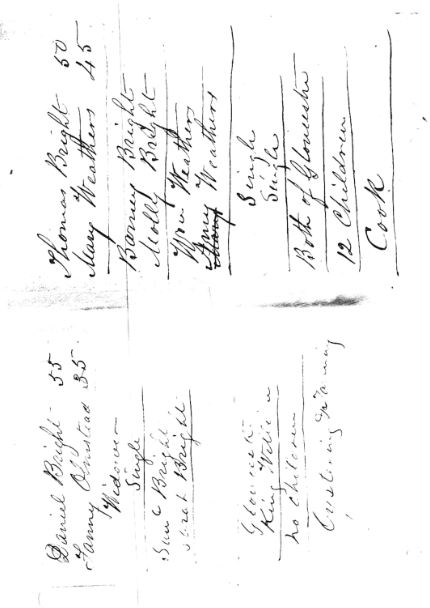 Daniel Bright 55
Fanny Olmstead 35
Widower
Single
Sam Bright
Sarah Bright
Gloucester
King William
no Children
Thomas Bright 50
Mary Weathers 45
Barney Bright
Molly Bright
Wm Weathers
Amy Weathers
Single
Single
Both of Gloucester
12 Children
Cook